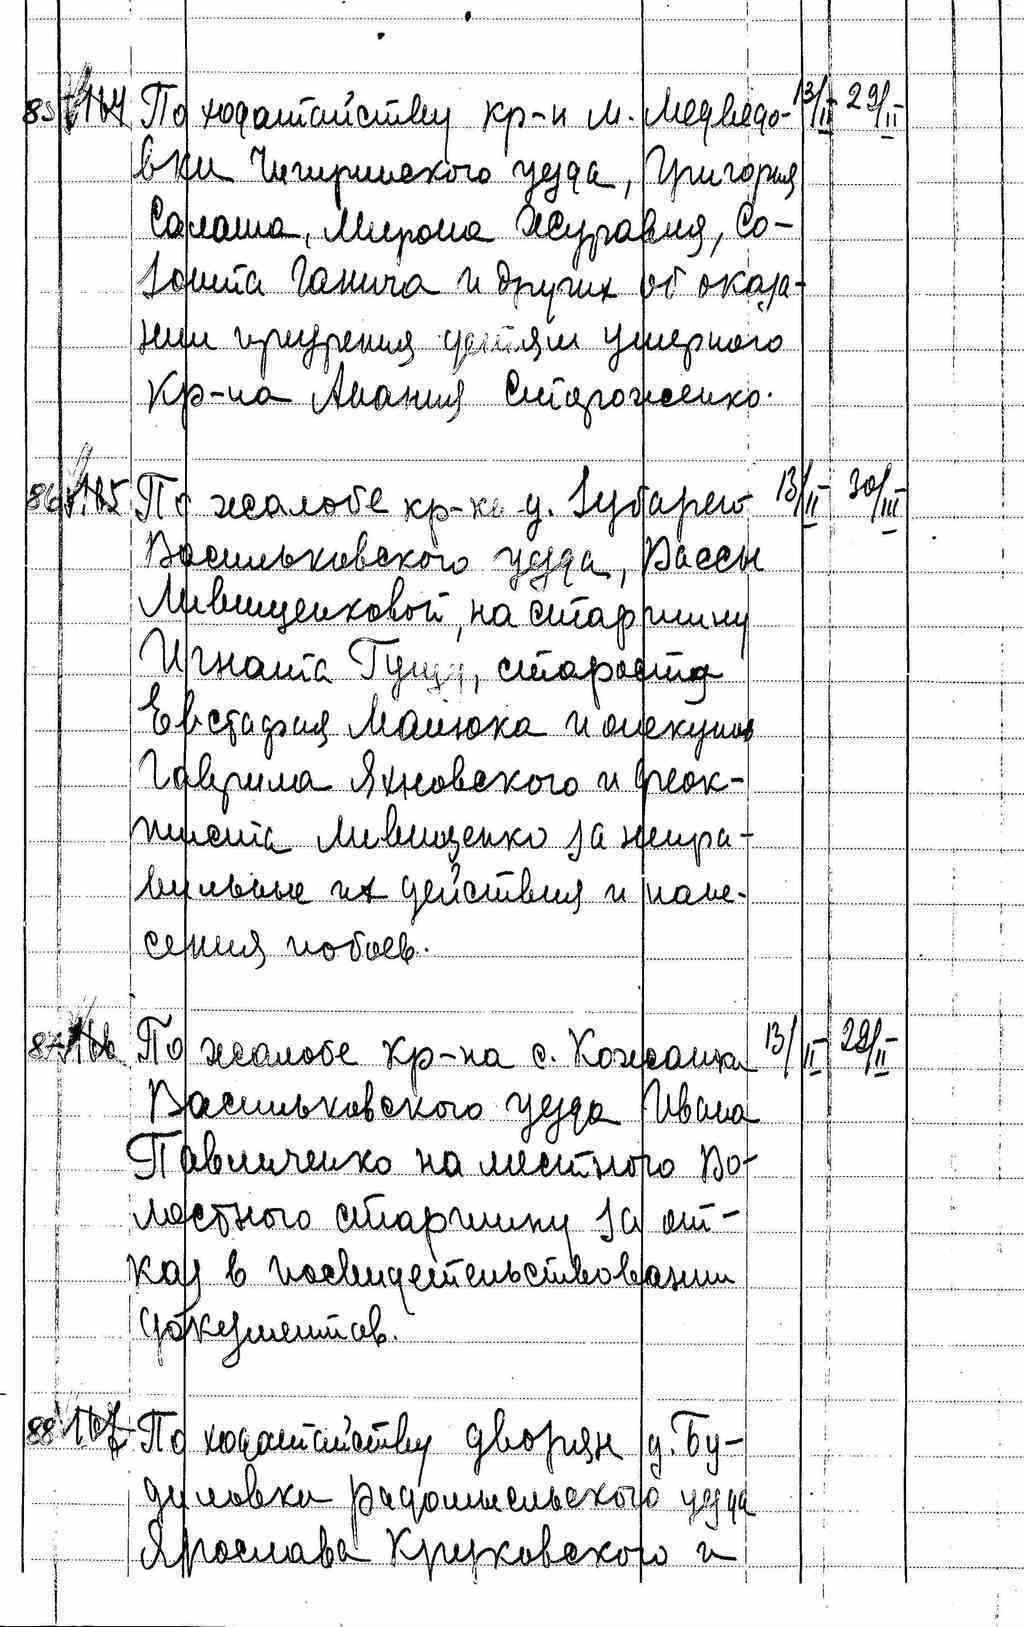 85 164 По ходатайству кр-н м. Медведо- 13/II 29/II
вки Чигиринского уезда, Григория
Салаша, Мирона Журавля, Со-
зонта Ганича и других об оказа-
нии призрения детям умерного
кр-на Анания Стороженко.
86 165 По жалобе кр-ки д. Зубарей 13/II 30/III
Васильковского уезда, Вассы
Лившенковой, на старшину
Игната Гущу, старосту
Евстафия Манюка и опекунов
Гаврила Яхновского и Феок-
тиста Лившенко за непра-
вильные их действия и нане-
сения побоев.
87 166 По жалобе кр-на с. Кожанка 13/II 29/II
Васильковского уезда Ивана
Павличенко на местного Во-
лостного старшину за от-
каз в посвидетельствовании
документов.
88 167 По ходатайству дворян д. Бу-
диловки Радомысльского уезда
Ярослава Крижовского и